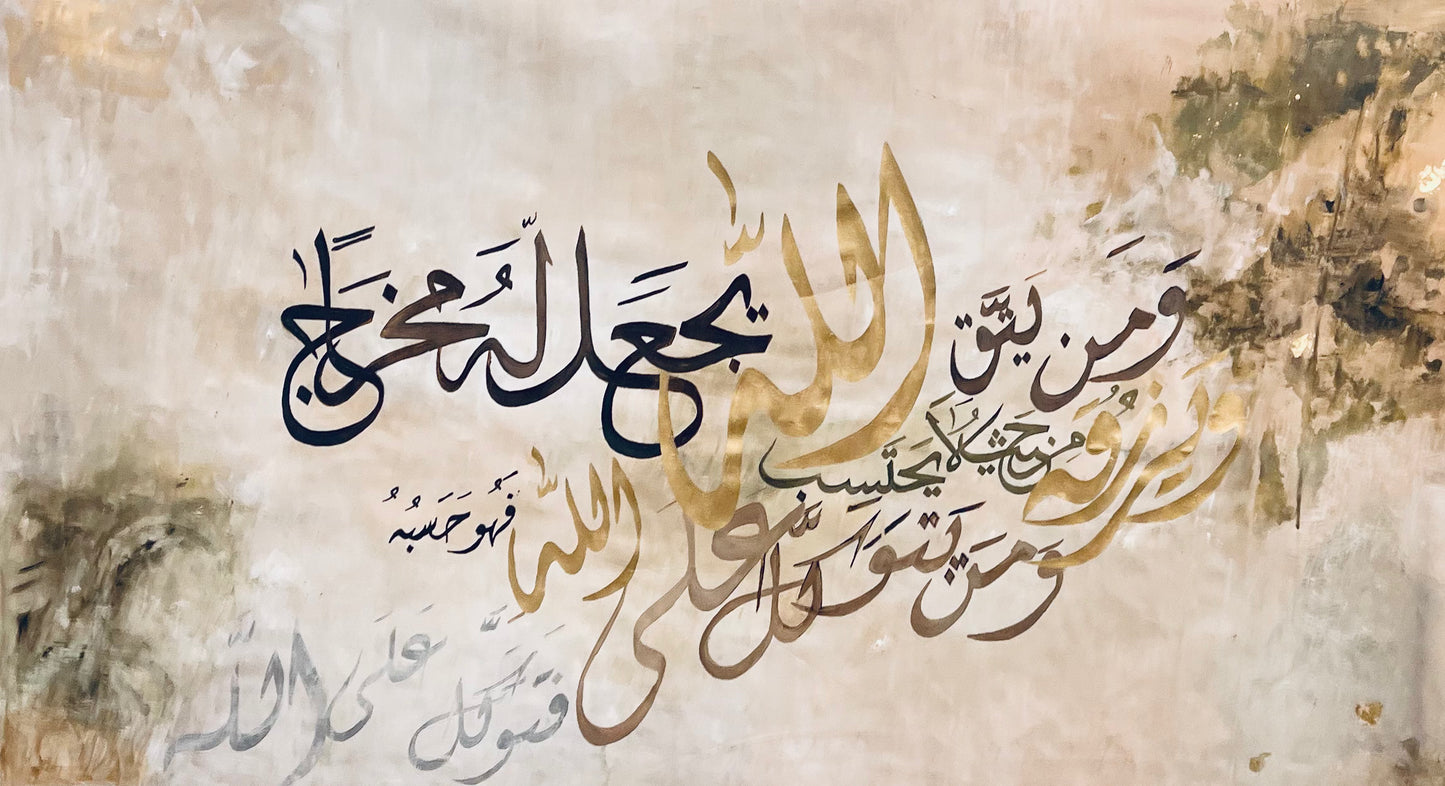 وَمَن يَتَّقِ اللّٰه يَجْعَل لَّهُ مَخْرَجًا
وَيَرْزُقْهُ مِنْ حَيْثُ لَا يَحْتَسِب
وَمَن يَتَوَكَّل عَلَى اللّٰه فَهُوَ حَسْبُهُ
فَتَوَكَّل عَلَى اللَّه